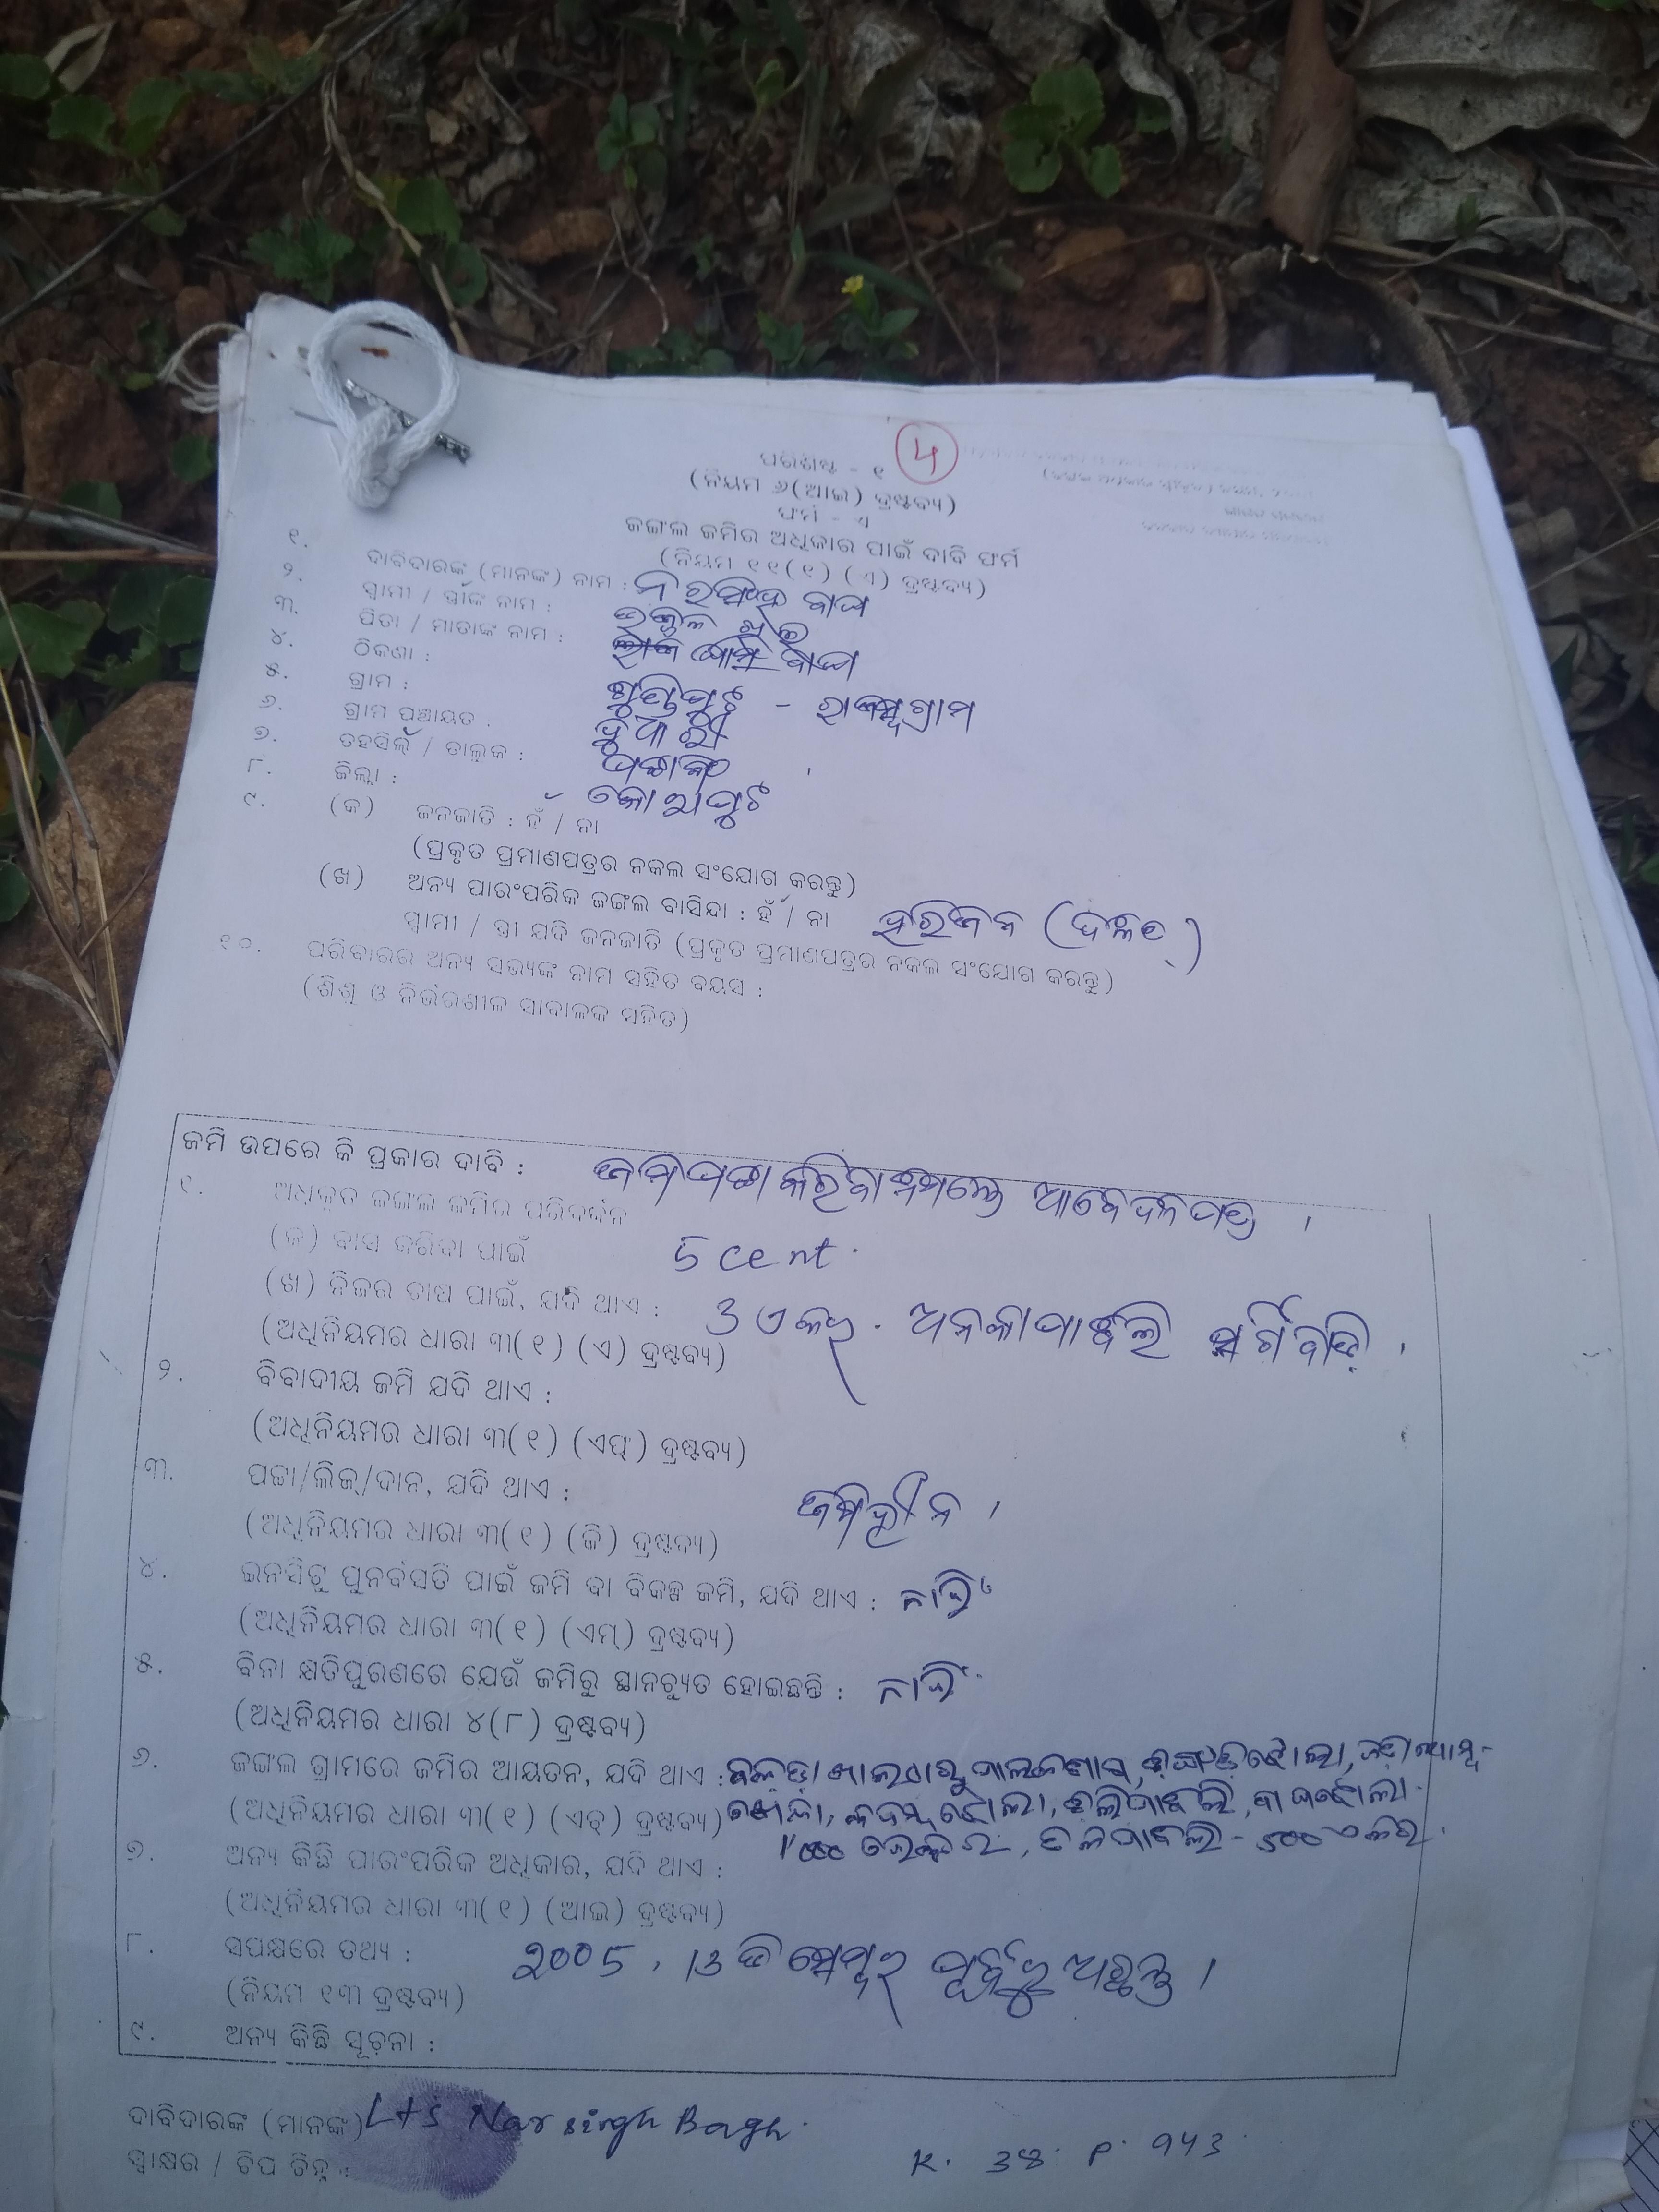 ପରିଶିଷ୍ଟ - ୧ ୫
(ନିୟମ ୬(ଆଇ) ଦ୍ରଷ୍ଟବ୍ୟ)
ଫର୍ମ - ଏ
ଜଙ୍ଗଲ ଜମିର ଅଧିକାର ପାଇଁ ଦାବି ଫର୍ମ
(ନିୟମ ୧୧(୧) (ଏ) ଦ୍ରଷ୍ଟବ୍ୟ)
୧. ଦାବିଦାରଙ୍କ (ମାନଙ୍କ) ନାମ : ନରସିଂହ ବାଘ
୨. ସ୍ୱାମୀ / ସ୍ତ୍ରୀଙ୍କ ନାମ :
୩. ପିତା / ମାତାଙ୍କ ନାମ : ବାଘ
୪. ଠିକଣା :
୫. ଗ୍ରାମ : ଗୁଣ୍ଡିପୁଟ - ରାଜସ୍ୱଗ୍ରାମ
୬. ଗ୍ରାମ ପଞ୍ଚାୟତ :
୭. ତହସିଲ୍ / ତାଲୁକ :
୮. ଜିଲ୍ଲା : କୋରାପୁଟ
୯. (କ) ଜନଜାତି : ହଁ / ନା
(ପ୍ରକୃତ ପ୍ରମାଣପତ୍ରର ନକଲ ସଂଯୋଗ କରନ୍ତୁ)
(ଖ) ଅନ୍ୟ ପାରଂପରିକ ଜଙ୍ଗଲ ବାସିନ୍ଦା : ହଁ / ନା ହରିଜନ (ଦଳିତ)
ସ୍ୱାମୀ / ସ୍ତ୍ରୀ ଯଦି ଜନଜାତି (ପ୍ରକୃତ ପ୍ରମାଣପତ୍ରର ନକଲ ସଂଯୋଗ କରନ୍ତୁ)
୧୦. ପରିବାରର ଅନ୍ୟ ସଭ୍ୟଙ୍କ ନାମ ସହିତ ବୟସ :
(ଶିଶୁ ଓ ନିର୍ଭରଶୀଳ ସାବାଳକ ସହିତ)
ଜମି ଉପରେ କି ପ୍ରକାର ଦାବି : ଜମିପଟ୍ଟା କରିବା ନିମନ୍ତେ ଆବେଦନପତ୍ର ।
୧. ଅଧିକୃତ ଜଙ୍ଗଲ ଜମିର ପରିବର୍ଦ୍ଧନ
(କ) ବାସ କରିବା ପାଇଁ 5 cent.
(ଖ) ନିଜର ଚାଷ ପାଇଁ, ଯଦି ଥାଏ : 3 ଏକର.
(ଅଧିନିୟମର ଧାରା ୩(୧) (ଏ) ଦ୍ରଷ୍ଟବ୍ୟ)
୨. ବିବାଦୀୟ ଜମି ଯଦି ଥାଏ :
(ଅଧିନିୟମର ଧାରା ୩(୧) (ଏଫ୍) ଦ୍ରଷ୍ଟବ୍ୟ)
୩. ପଟ୍ଟା/ଲିଜ୍/ଦାନ, ଯଦି ଥାଏ : ଜମିହୀନ ।
(ଅଧିନିୟମର ଧାରା ୩(୧) (ଜି) ଦ୍ରଷ୍ଟବ୍ୟ)
୪. ଇନସିଟୁ ପୁନର୍ବସତି ପାଇଁ ଜମି ବା ବିକଳ୍ପ ଜମି, ଯଦି ଥାଏ : ନାହିଁ
(ଅଧିନିୟମର ଧାରା ୩(୧) (ଏମ୍) ଦ୍ରଷ୍ଟବ୍ୟ)
୫. ବିନା କ୍ଷତିପୁରଣରେ ଯେଉଁ ଜମିରୁ ସ୍ଥାନଚ୍ୟୁତ ହୋଇଛନ୍ତି : ନାହିଁ
(ଅଧିନିୟମର ଧାରା ୪(୮) ଦ୍ରଷ୍ଟବ୍ୟ)
୬. ଜଙ୍ଗଲ ଗ୍ରାମରେ ଜମିର ଆୟତନ, ଯଦି ଥାଏ :
(ଅଧିନିୟମର ଧାରା ୩(୧) (ଏଚ୍) ଦ୍ରଷ୍ଟବ୍ୟ)
୭. ଅନ୍ୟ କିଛି ପାରଂପରିକ ଅଧିକାର, ଯଦି ଥାଏ :
(ଅଧିନିୟମର ଧାରା ୩(୧) (ଆଇ) ଦ୍ରଷ୍ଟବ୍ୟ)
୮. ସପକ୍ଷରେ ତଥ୍ୟ : 2005, 13 ଡିସେମ୍ବର ପୂର୍ବରୁ ଅଛନ୍ତି ।
(ନିୟମ ୧୩ ଦ୍ରଷ୍ଟବ୍ୟ)
୯. ଅନ୍ୟ କିଛି ସୂଚନା :
ଦାବିଦାରଙ୍କ (ମାନଙ୍କ) Lts Narsingh Bagh.
ସ୍ୱାକ୍ଷର / ଟିପ ଚିହ୍ନ : K. 38. P. 943.